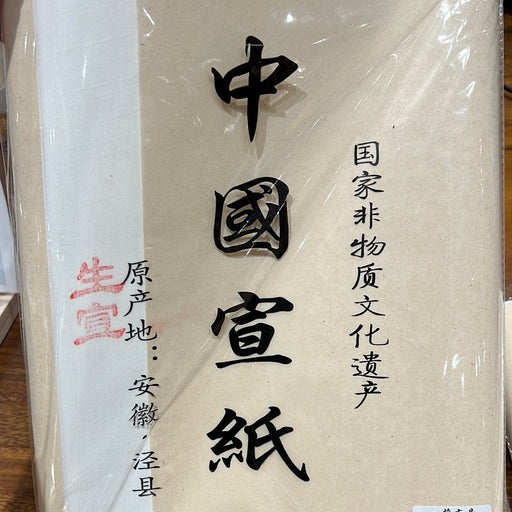 国家非物质文化遗产
中國宣紙
原产地：安徽·泾县
生宣